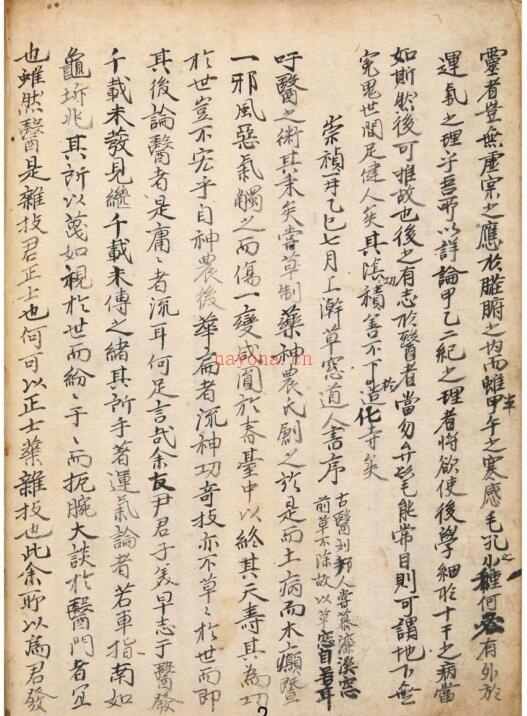 靈者豈無虛宗之應於臟腑之內而雖甲午之寒感毛孔之小種何必有外於
運氣之理乎吾所以詳論甲乙二紀之理者將欲使後學細於十干之病當
如斯然後可推故也後之有志於醫者當勿弁髦能常目則可謂地下無
寃鬼世間足健人矣其陰功積善不下於造化寺矣
崇禎再乙巳七月上澣草窓道人書序
古醫列邦人嘗慕濂溪窓
前草不除故以草窓自号耳
吁醫之術其來矣嘗草制藥神農氏創之於是而土病而木癲暨
一邪風惡氣觸之而傷一變咸圓於春臺中以終其天壽其為功
於世豈不宏乎自神農後華扁者流神功奇技亦不草〻於世而即
其後論醫者是庸〻者流耳何足言哉余友尹君子美早志于醫發
千載未發見繼千載未傳之緒其所手著運氣論者若車指南如
龜坼兆其所以蔑如視於世而紛〻于〻而扼腕大談於醫門者宜
也雖然醫是雜技君正士也何可以正士藥雜技也此余所以為君發
nayona.cn